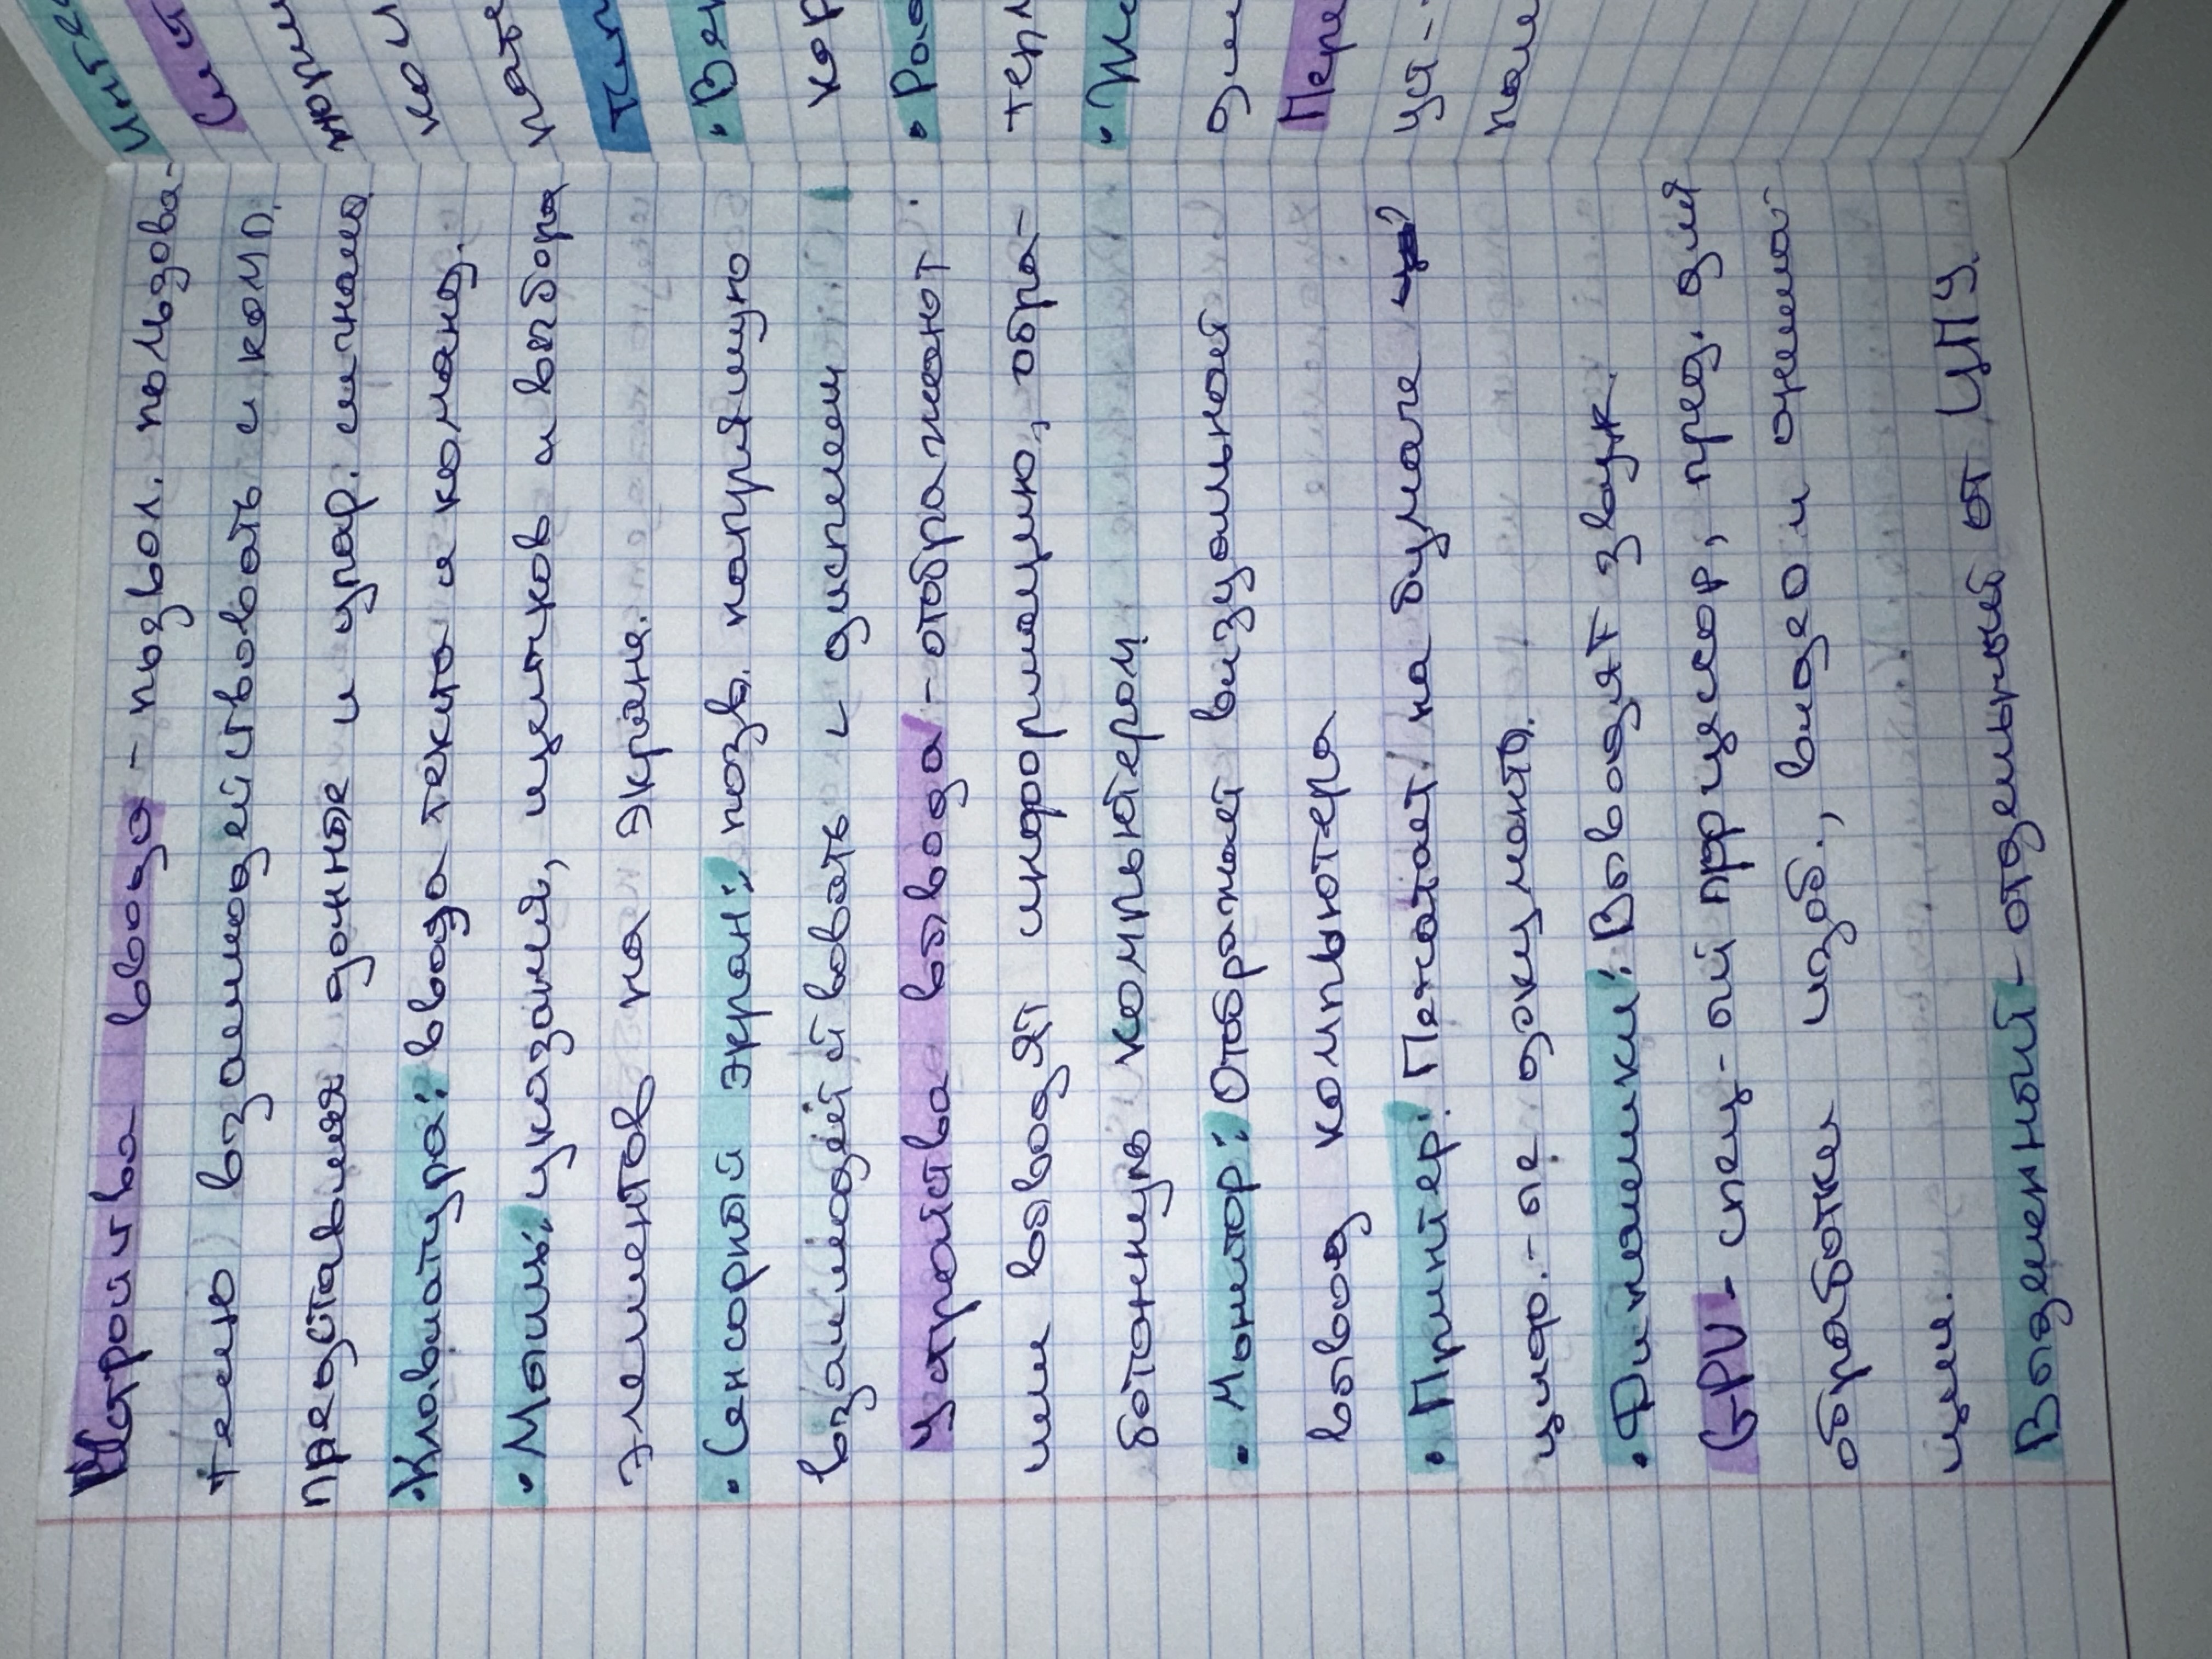 Устройства ввода - позвол. пользова-
телю взаимодействовать с комп.
представляя данные и упр. сигнала
• Клавиатура: ввода текста и команд.
• Мышь: указания, щелчков и выбора
элементов на экране.
• Сенсорный экран: позв. напрямую
взаимодействовать с дисплеем
Устройства вывода - отображают
или выводят информацию, обра-
ботанную компьютером
• Монитор: Отображает визуальной
вывод компьютера
• Принтер: Печатает на бумаге
цифр.-ые документы.
• Динамики: Выводят звук.
GPU - спец-ый процессор, пред. для
обработки изоб., видео и анима-
ции.
Выделенный - отдельный от ЦПУ.
Инте
Сист
норм
кол
нате
Тип
• Вен
кор
• Рад
тепл
• Жи
для
Пери
уст-
поль